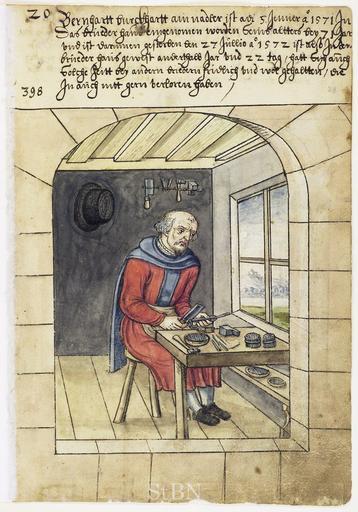 20
Bernhartt burckhartt ain nadler ist adi 5 Jenner aº 1571 Jn
Das brüeder haus eingenomen worden seines altters bey 71 Jar
vnd ist darinnen gestorben den 27 Jullio aº 1572 ist also Jn
brüeder haus gewest anderthalb Jar vnd 22 tag, hatt sich auch
Solche Zeitt bey andern brüedern fridlich vnd wol gehaltten, die
Jn auch nitt gern verloren haben
398
StBN